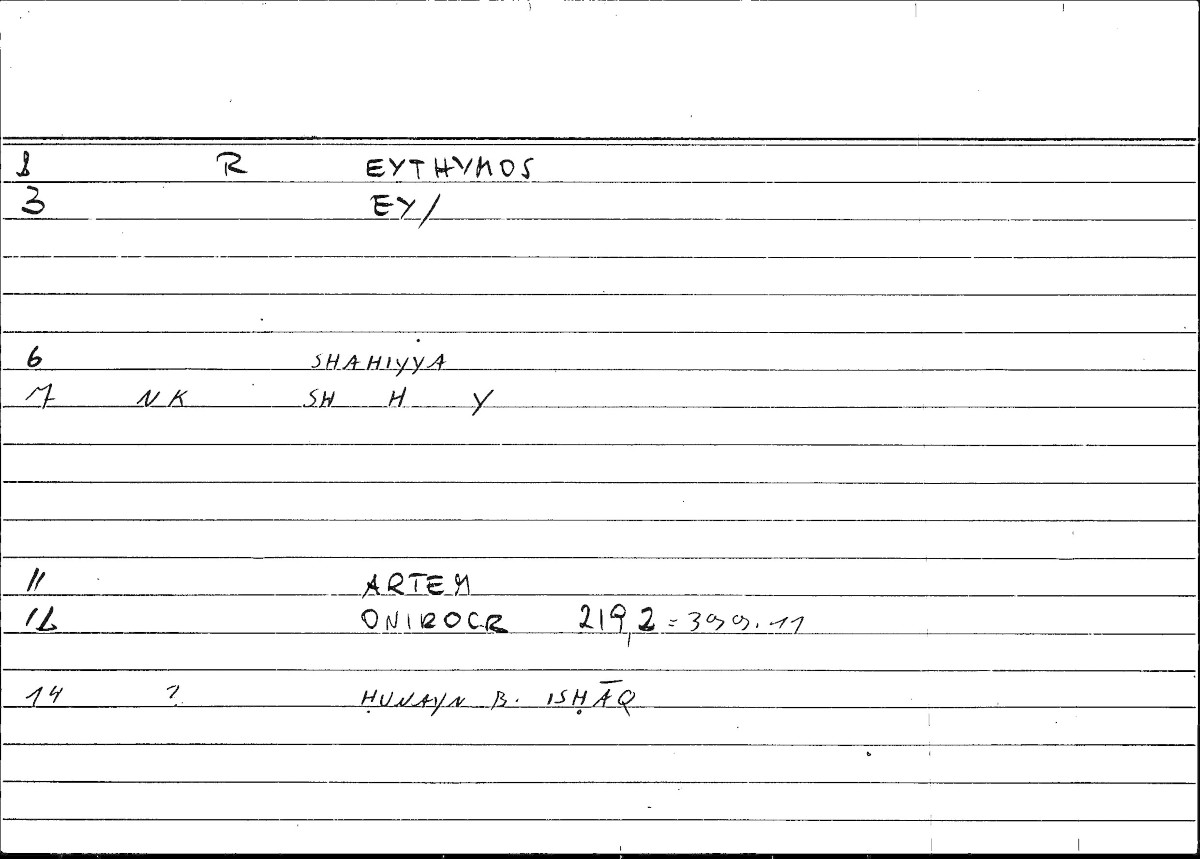 1 R EYTHYMOS
3 EY/
6 SHAHIYYA
7 NK SH H Y
11 ARTEM
12 ONIROCR 219,2 = 399.11
14 ? ḤUNAYN B. ISḤĀQ